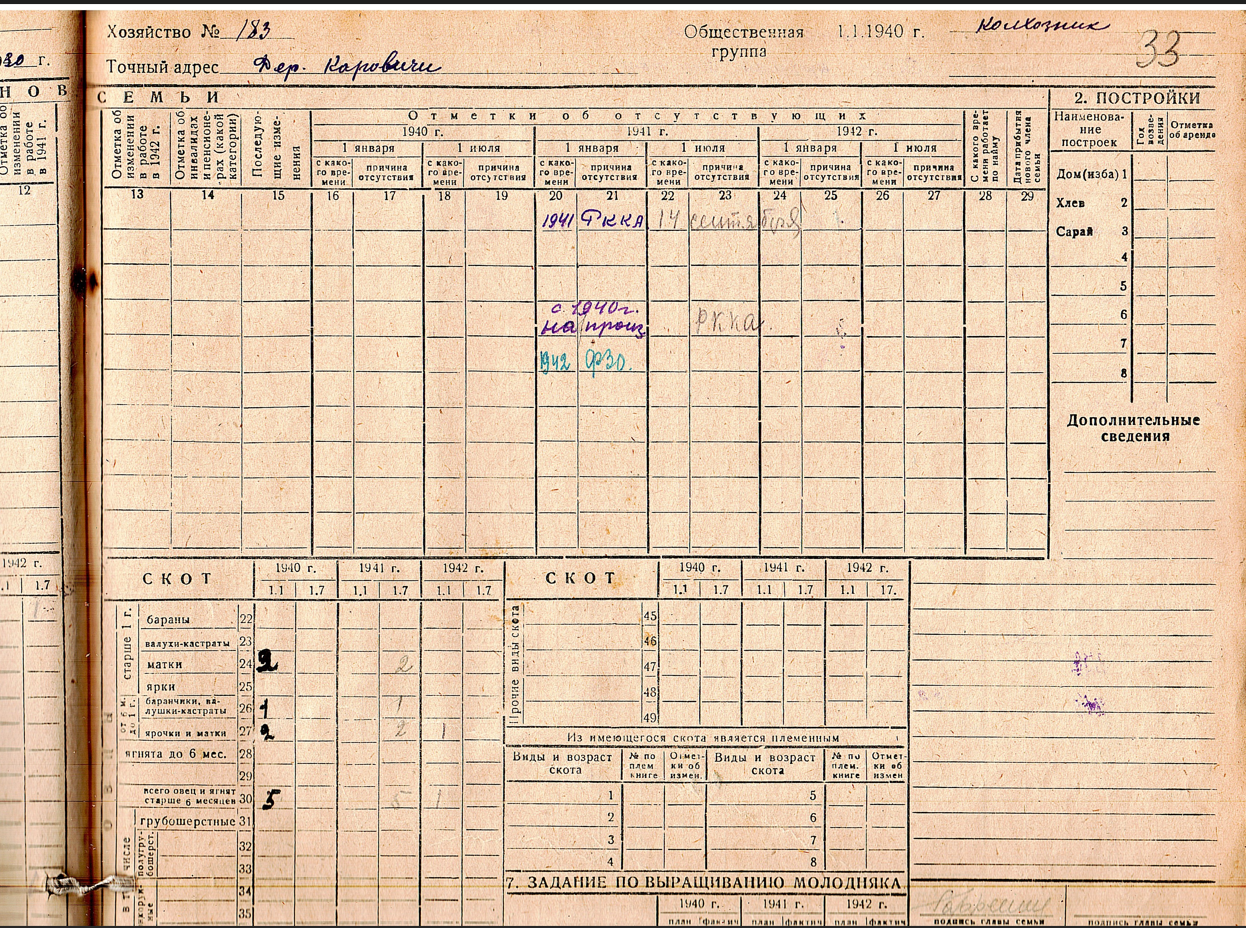 Хозяйство № 183
Общественная группа 1.1.1940 г. Колхозник
33
Точный адрес Дер. Каровичи
НОВ СЕМЬИ
Отметка об изменении в работе в 1941 г.
12
Отметка об изменении в работе в 1942 г.
Отметка об инвалидах и пенсионерах (какой категории)
Последующие изменения
Отметки об отсутствующих
1940 г. 1941 г. 1942 г.
1 января 1 июля 1 января 1 июля 1 января 1 июля
с какого времени причина отсутствия с какого времени причина отсутствия с какого времени причина отсутствия с какого времени причина отсутствия с какого времени причина отсутствия с какого времени причина отсутствия
С какого времени работает по найму
Дата прибытия нового члена семьи
13 14 15 16 17 18 19 20 21 22 23 24 25 26 27 28 29
1941 РККА 14 сентября
с 1940г.
на произ РККА
1942 ФЗО.
2. ПОСТРОЙКИ
Наименование построек Год возведения Отметка об аренде
Дом(изба) 1
Хлев 2
Сарай 3
4
5
6
7
8
Дополнительные сведения
1942 г.
1.1 1.7
СКОТ 1940 г. 1941 г. 1942 г.
1.1 1.7 1.1 1.7 1.1 1.7
старше 1 г.
бараны 22
валухи-кастраты 23
матки 24 2 2
ярки 25
от 6 м. до 1 г.
баранчики, валушки-кастраты 26 1 1
ярочки и матки 27 2 2 1
ягнята до 6 мес. 28
29
всего овец и ягнят старше 6 месяцев 30 5 5 1
грубошерстные 31
в т. числе
полугрубошерст.
32
33
34
35
СКОТ 1940 г. 1941 г. 1942 г.
1.1 1.7 1.1 1.7 1.1 17.
Прочие виды скота
45
46
47
48
49
Из имеющегося скота является племенным
Виды и возраст скота № по плем. книге Отметки об измен. Виды и возраст скота № по плем. книге Отметки об измен
1 5
2 6
3 7
4 8
7. ЗАДАНИЕ ПО ВЫРАЩИВАНИЮ МОЛОДНЯКА
1940 г. 1941 г. 1942 г.
план фактич план фактич план фактич
подпись главы семьи подпись главы семьи